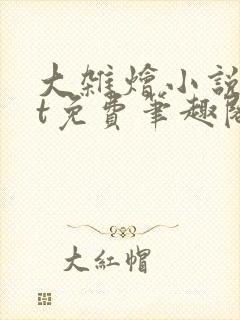 大雜燴小說
t免費筆趣閣
大紅帽